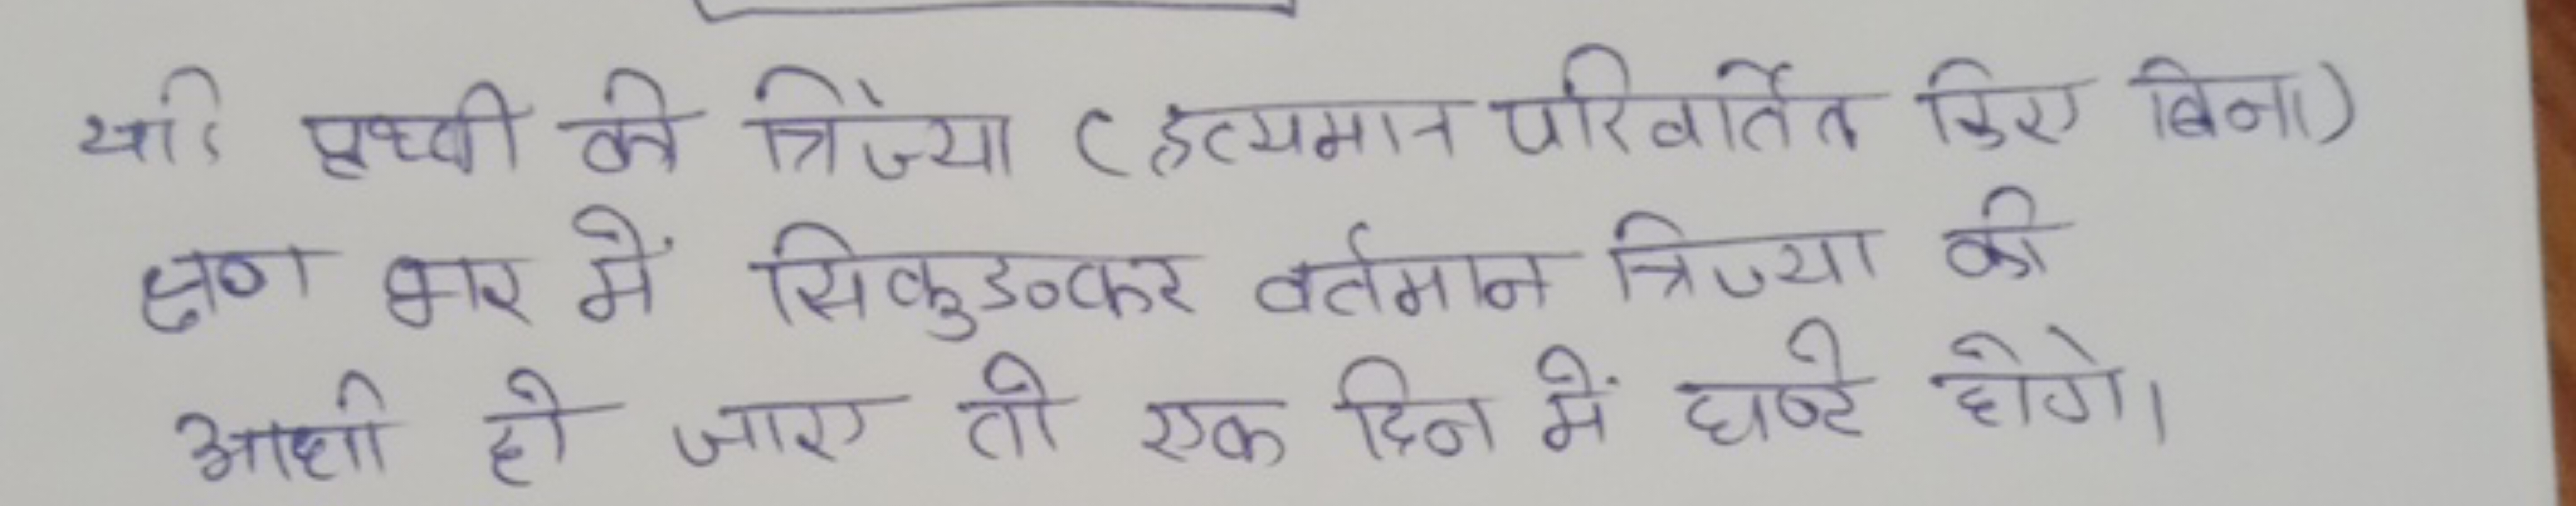 यदि पृथ्वी की त्रिज्या (द्रव्यमान परिवर्तित किए बिना)
क्षण भर में सिकुड़कर वर्तमान त्रिज्या की
आधी हो जाए तो एक दिन में घण्टे होगे।